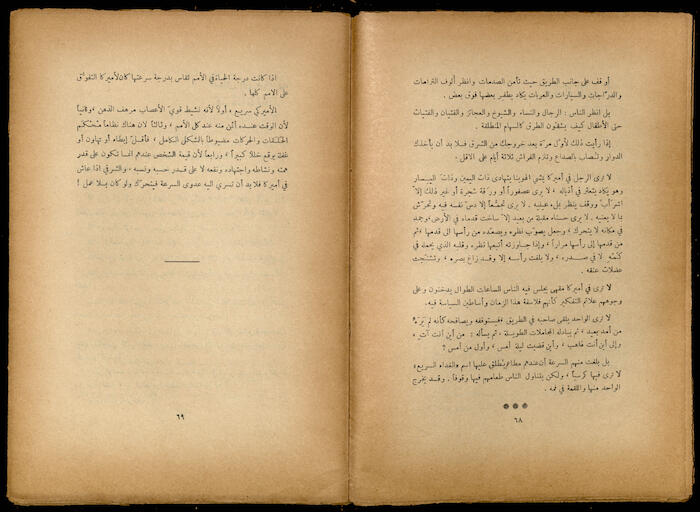 أو قف على جانب الطريق حيث تأمن الصدمات وانظر ألوف الترامات
والدرّاجات والسيارات والعربات يكاد يطفر بعضها فوق بعض .
بل انظر الناس : الرجال والنساء ، والشيوخ والعجائز والفتيان والفتيات
حتى الأطفال كيف يشقون الطرق كالسهام المنطلقة .
إذا رأيت ذلك لأول مرة بعد خروجك من الشرق فلا بد أن يأخذك
الدوار وتصاب بالصداع وتلزم الفراش ثلاثة أيام على الاقل .
لا ترى الرجل في أميركا يمشي الهوينا يتهادى ذات اليمين وذات اليسار
وهو يكاد يتعثر في أذياله ، لا يرى عصفوراً أو ورقة شجرة أو غير ذلك إلا
اشرأب ووقف ينظر بملء عينيه . لا يرى تجمعاً إلا دس نفسه فيه وتحرش
بما لا يعنيه . لا يرى حسناء مقبلة من بعيد إلا ساخت قدماه في الأرض وجمد
في مكانه لا يتحرك ، وجعل يصوّب نظره ويصعّده من رأسها الى قدمها ، ثم
من قدمها إلى رأسها مراراً ، وإذا جاوزته أتبعها نظره وقلبه الذي يحمله في
كمّه لا في صدره ، ولا يلفت رأسه إلا وقد زاغ بصره ، وتشنجت
عضلات عنقه .
لا ترى في أميركا مقهى يجلس فيه الناس الساعات الطوال يدخنون وعلى
وجوههم علائم التفكير كأنهم فلاسفة هذا الزمان وأساطين السياسة فيه .
لا ترى الواحد يلقى صاحبه في الطريق فيستوقفه ويصافحه كأنه لم يَرَهُ
من أمد بعيد ، ثم يبادله المجاملات الطويلة ، ثم يسأله : من أين أنت آت ،
وإلى أين أنت ذاهب ، وأين قضيت ليلة أمس ، وأول من أمس ؟
بل بلغت منهم السرعة أن عندهم مطاعم يُطلق عليها اسم «الغداء السريع»
لا ترى فيها كرسياً ، ولكن يتناول الناس طعامهم فيها وقوفاً . وقد يخرج
الواحد منها واللقمة في فمه .
٦٨
اذا كانت درجة الحياة في الأمم تقاس بدرجة سرعتها كان لأميركا التفوّق
على الامم كلها .
الأميركي سريع ، أولاً لأنه نشيط قويّ الأعصاب مرهف الذهن ، وثانياً
لأن الوقت عنده أثمن منه عند كل الأمم ، وثالثاً لان هناك نظاماً مُحكَم
الحلقات والحركات مضبوطاً بالشكل الكامل ، فأقلّ إبطاء أو تهاون أو
غفلة يوقع خللاً كبيراً ، ورابعاً لأن قيمة الشخص عندهم انما تكون على قدر
همته ونشاطه واجتهاده ونفعه لا على قدر حسبه ونسبه ، والشرقي اذا عاش
في أميركا فلا بد أن تسري اليه عدوى السرعة فيتحرك ولو كان بلا عمل !
٦٩